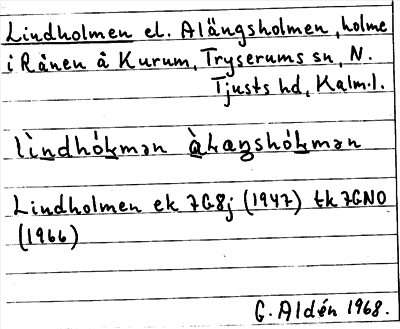 Lindholmen el. Alängsholmen, holme
i Rånen å Kurum, Tryserums sn, N.
Tjusts hd, Kalm.l.
lìndhóɫmən àɫæŋshóɫmən
Lindholmen ek 7G8j (1947) tk 7GNO
(1966)
G. Aldén 1968.